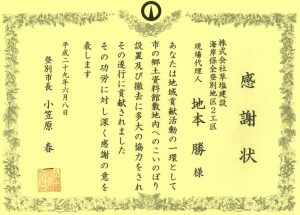 感謝状
株式会社草塩建設
海岸保全登別地区2工区
現場代理人
地本 勝 様
あなたは地域貢献活動の一環として
市の郷土資料館敷地内へのこいのぼり
設置及び撤去に多大の協力をされ
その遂行に貢献されました
その功労に対し深く感謝の意を
表します
平成二十九年六月八日
登別市長 小笠原 春一